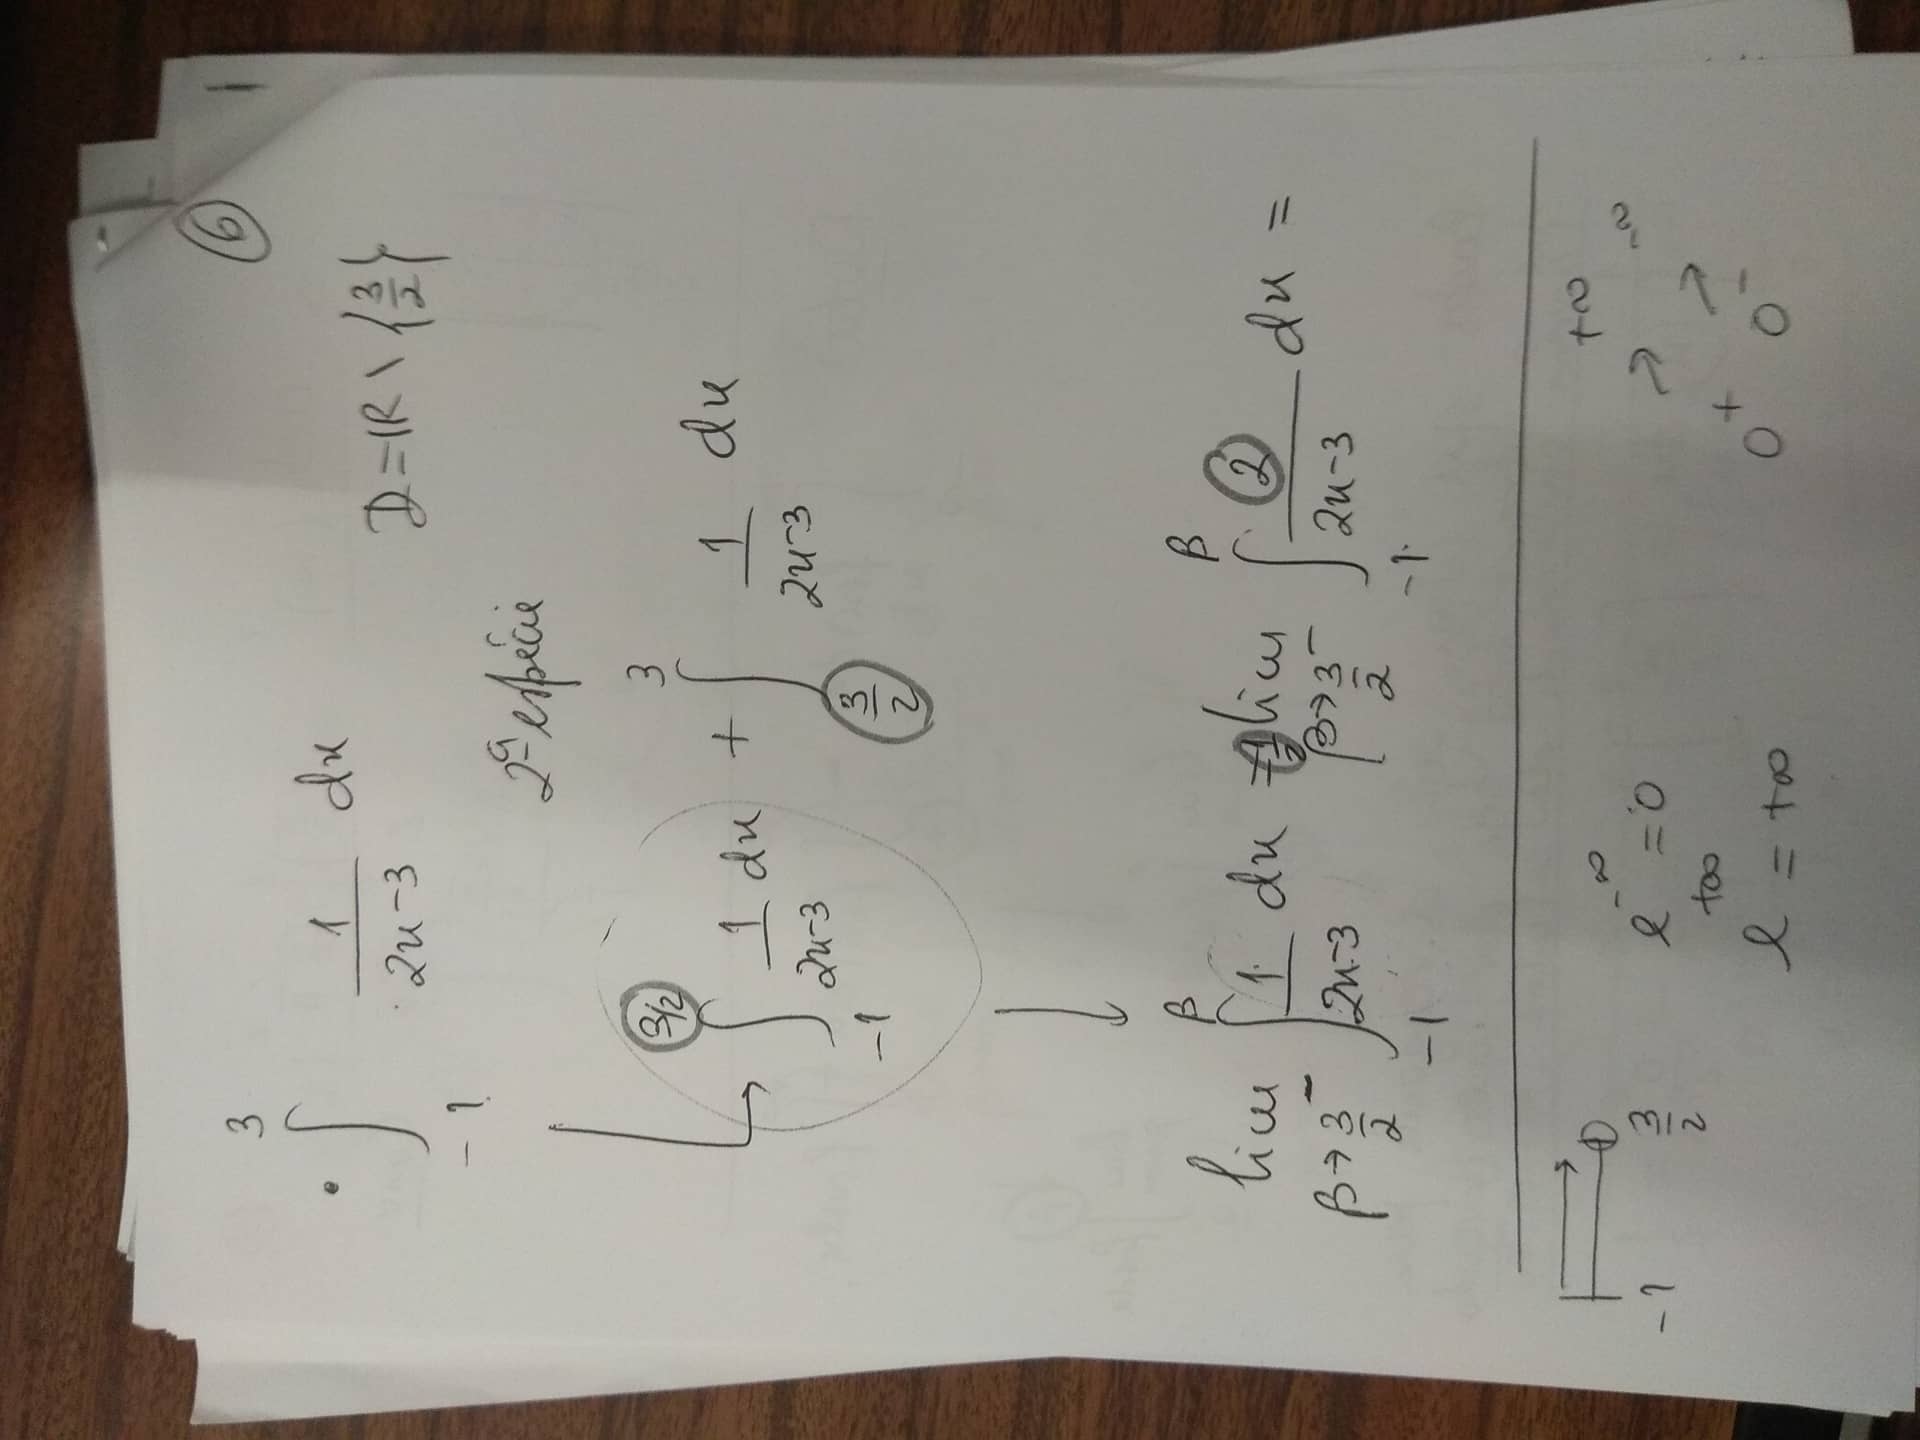 ⑥
∫_{-1}^{3} 1/(2x-3) dx    D = ℝ \ {3/2}
2ª espécie
∫_{-1}^{3/2} 1/(2x-3) dx + ∫_{3/2}^{3} 1/(2x-3) dx
lim_{β→3/2⁻} ∫_{-1}^{β} 1/(2x-3) dx = 1/2 lim_{β→3/2⁻} ∫_{-1}^{β} 2/(2x-3) dx =
-1    3/2
e^{-∞} = 0    +∞    -∞
e^{+∞} = +∞    0⁺    0⁻